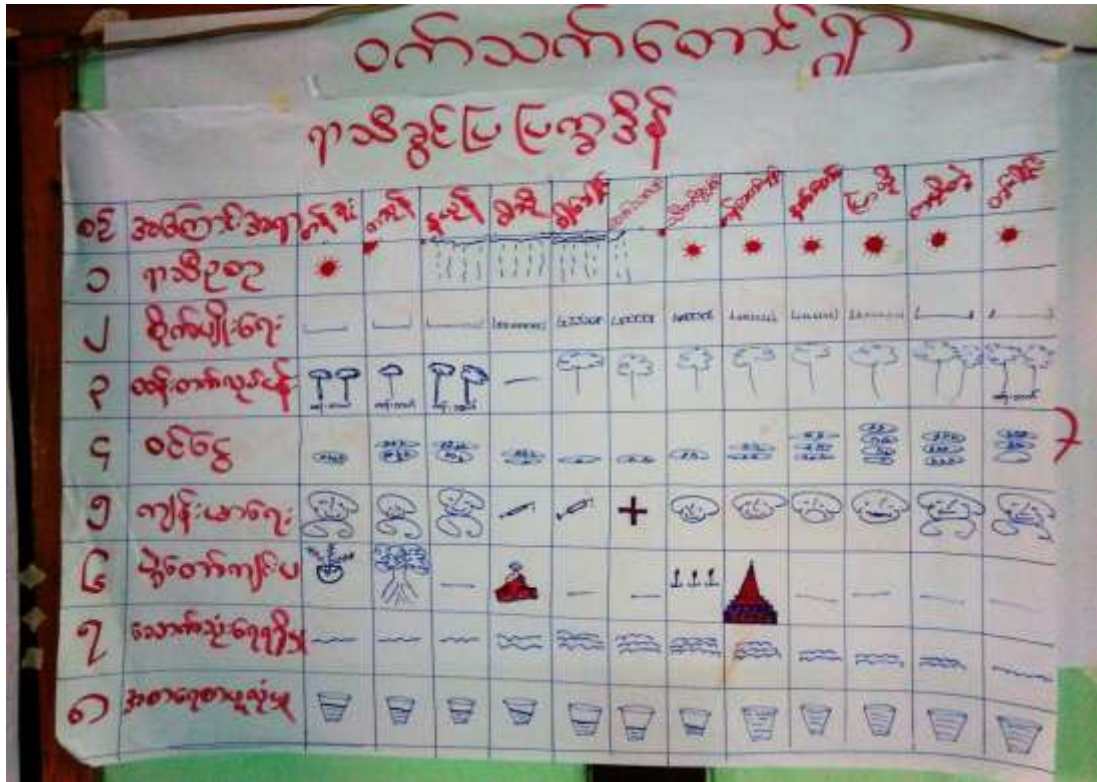 ဝက်သက်တောင်ရွာ
ရာသီခွင်ပြပြက္ခဒိန်
စဉ် အကြောင်းအရာ တန်ခူး ကဆုန် နယုန် ဝါဆို ဝါခေါင် တော်သလင်း သီတင်းကျွတ် တန်ဆောင်မုန်း နတ်တော် ပြာသို တပို့တွဲ တပေါင်း
၁ ရာသီဥတု
၂ စိုက်ပျိုးရေး
၃ ထန်းတက်လုပ်ငန်း
၄ ဝင်ငွေ
၅ ကျန်းမာရေး
၆ ပွဲတော်ကျင်းပ
၇ သောက်သုံးရေရရှိမှု
၈ အစားရေစာဖူလုံမှု